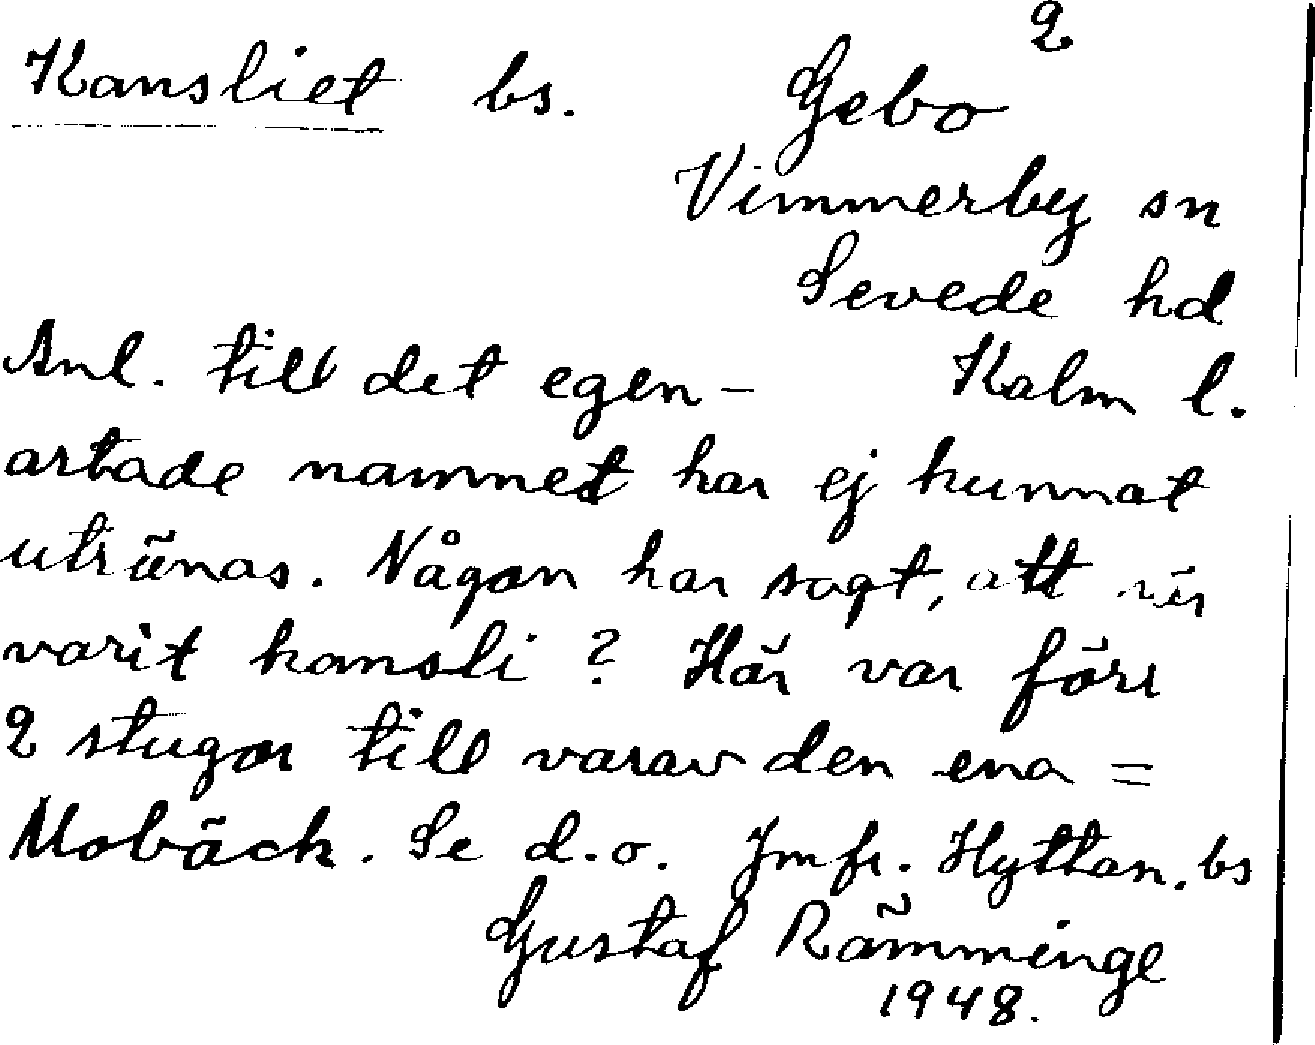 2
Kansliet bs. Gebo
Vimmerby sn
Sevede hd
Anl. till det egen- Kalm l.
artade namnet har ej kunnat
utrönas. Någon har sagt, att
varit kansli? Här var förr
2 stugor till varav den ena =
Mobäck. Se d.o. Jmfr. Hyttan. bs
Gustaf Rämminge
1948.